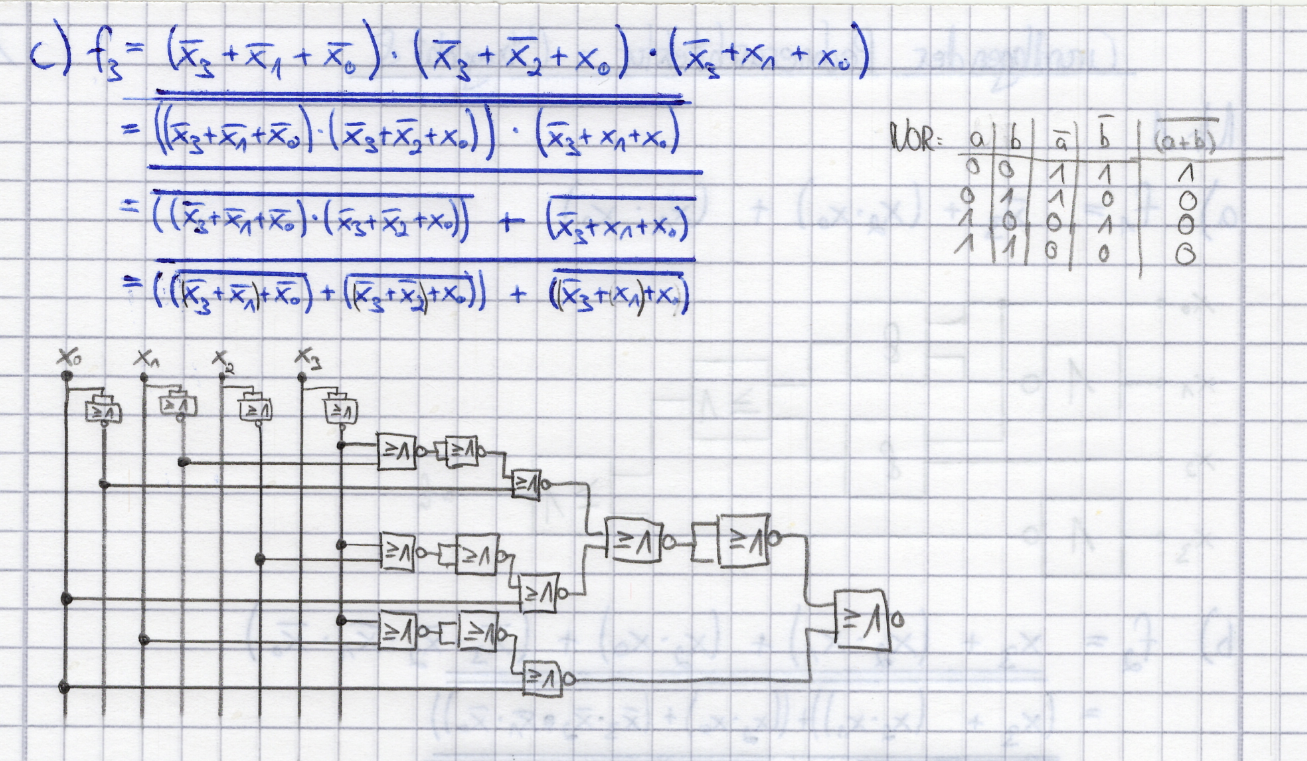 c) f₃ = (x̄₃ + x̄₁ + x̄₀) · (x̄₃ + x̄₂ + x₀) · (x̄₃ + x₁ + x₀)
= ((x̄₃+x̄₁+x̄₀)·(x̄₃+x̄₂+x₀)) · (x̄₃+x₁+x₀)
= ((x̄₃+x̄₁+x̄₀)·(x̄₃+x̄₂+x₀)) + (x̄₃+x₁+x₀)
= (((x̄₃+x̄₁)+x̄₀)+((x̄₃+x̄₂)+x₀)) + ((x̄₃+x₁)+x₀)
NOR: a b ā b̄ (a+b)
0 0 1 1 1
0 1 1 0 0
1 0 0 1 0
1 1 0 0 0
x₀ x₁ x₂ x₃
≥1 ≥1 ≥1 ≥1
≥1 ≥1
≥1
≥1 ≥1
≥1 ≥1
≥1
≥1 ≥1
≥1
≥1